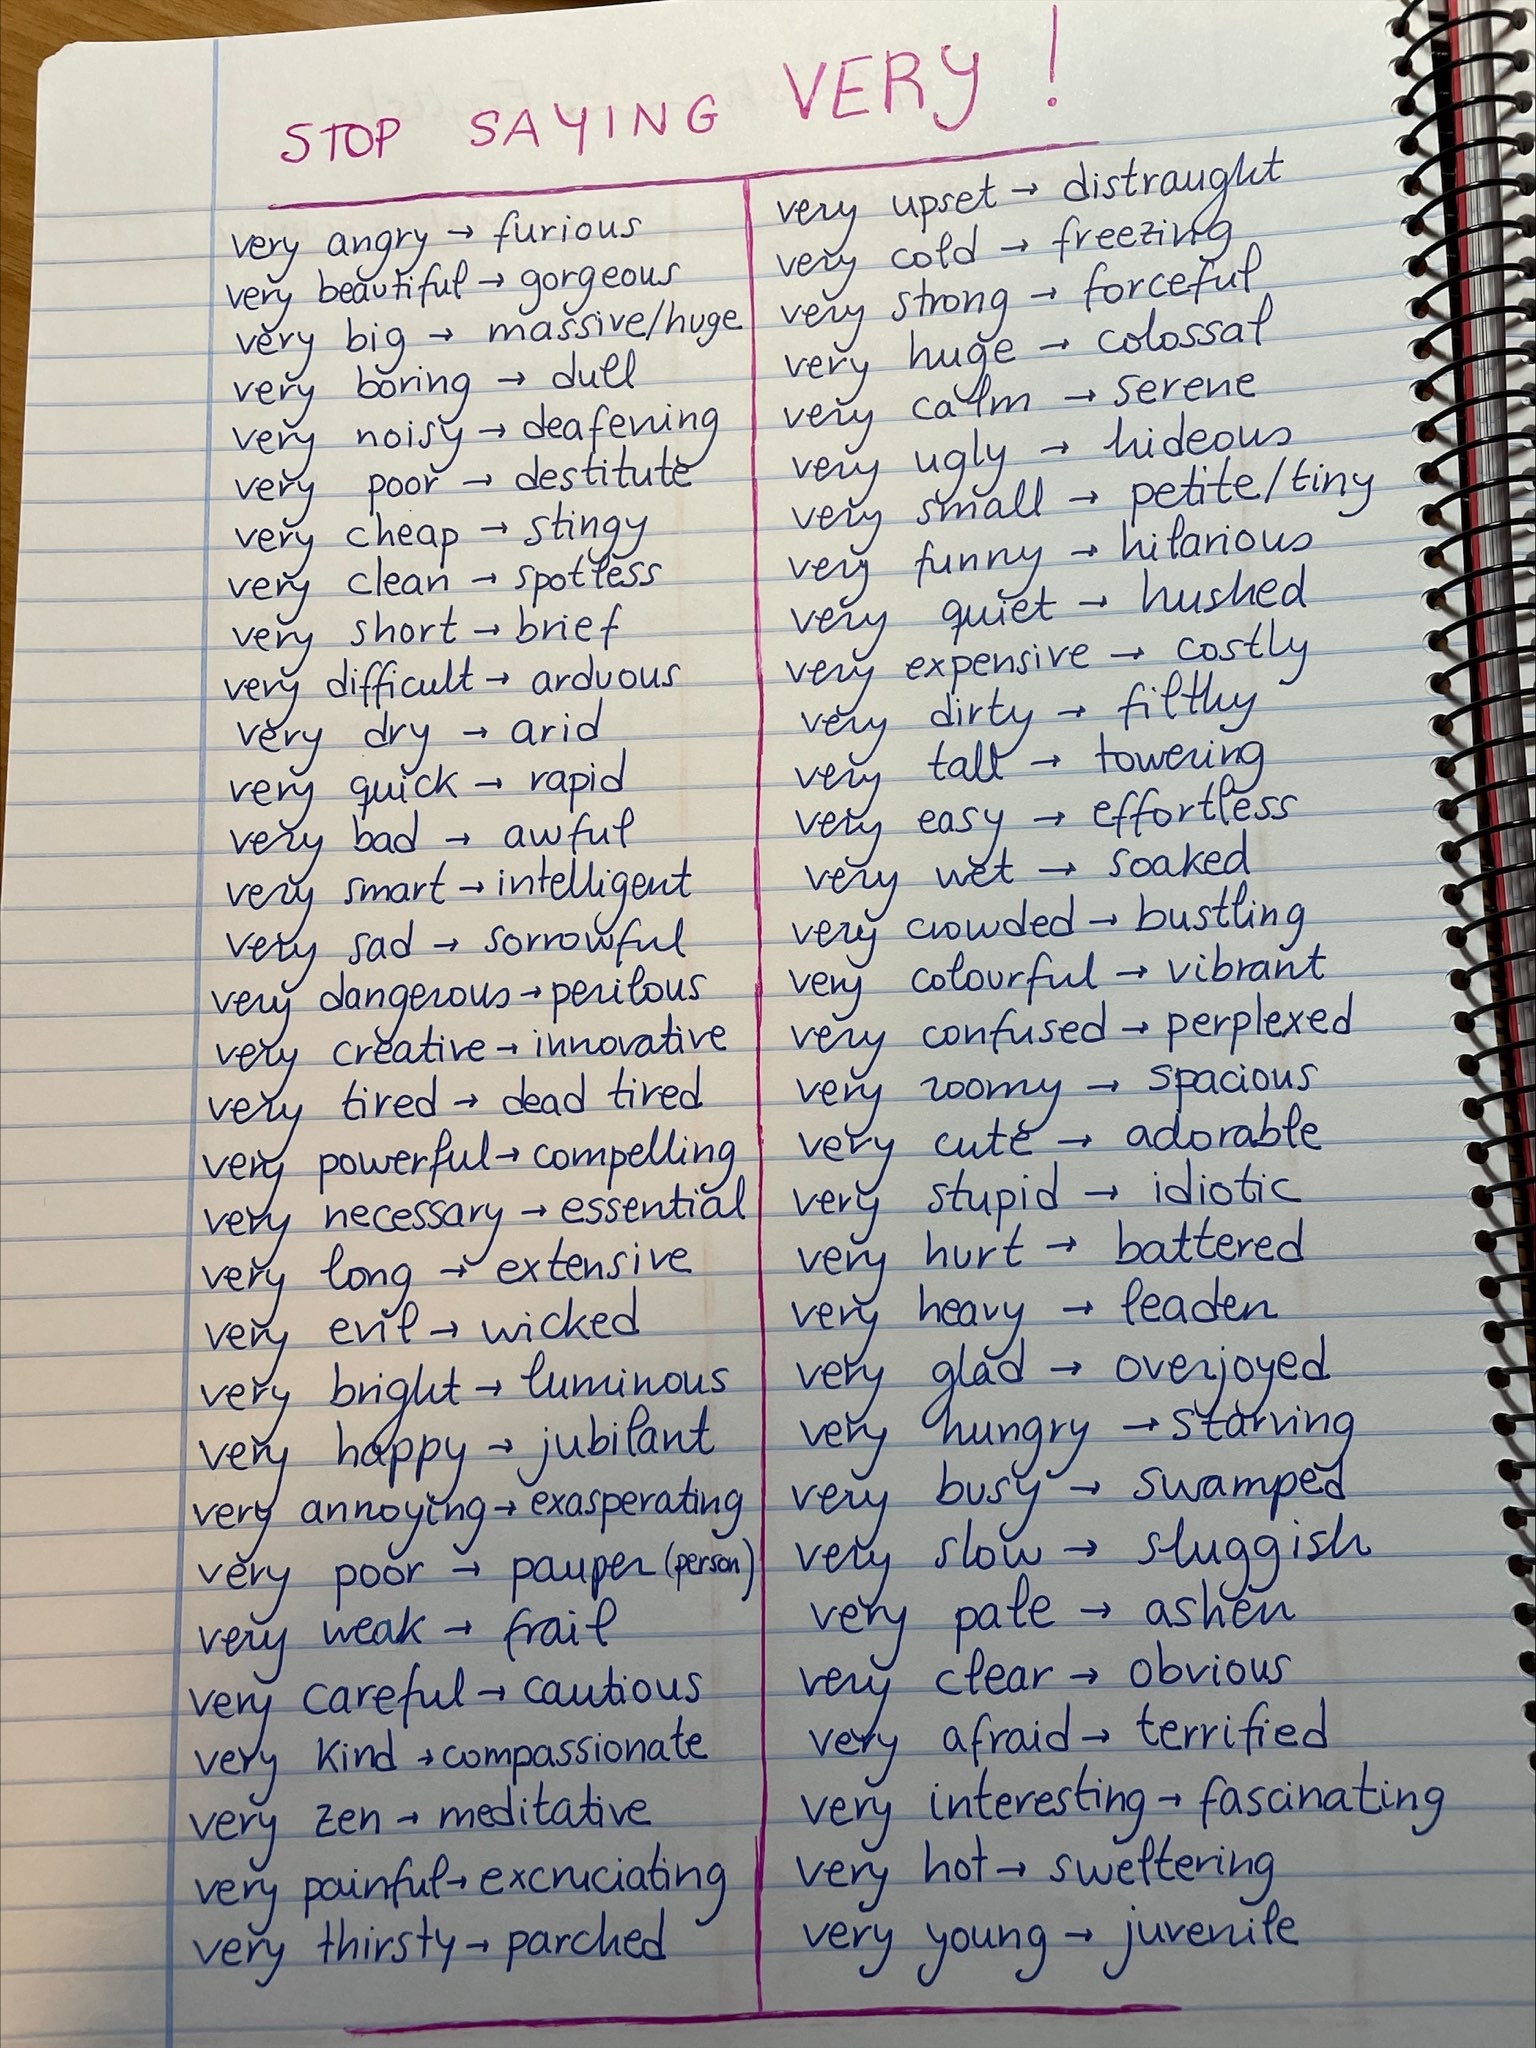 STOP SAYING VERY!
very angry → furious
very beautiful → gorgeous
very big → massive/huge
very boring → dull
very noisy → deafening
very poor → destitute
very cheap → stingy
very clean → spotless
very short → brief
very difficult → arduous
very dry → arid
very quick → rapid
very bad → awful
very smart → intelligent
very sad → sorrowful
very dangerous → perilous
very creative → innovative
very tired → dead tired
very powerful → compelling
very necessary → essential
very long → extensive
very evil → wicked
very bright → luminous
very happy → jubilant
very annoying → exasperating
very poor → pauper (person)
very weak → frail
very careful → cautious
very kind → compassionate
very zen → meditative
very painful → excruciating
very thirsty → parched
very upset → distraught
very cold → freezing
very strong → forceful
very huge → colossal
very calm → serene
very ugly → hideous
very small → petite/tiny
very funny → hilarious
very quiet → hushed
very expensive → costly
very dirty → filthy
very tall → towering
very easy → effortless
very wet → soaked
very crowded → bustling
very colourful → vibrant
very confused → perplexed
very roomy → spacious
very cute → adorable
very stupid → idiotic
very hurt → battered
very heavy → leaden
very glad → overjoyed
very hungry → starving
very busy → swamped
very slow → sluggish
very pale → ashen
very clear → obvious
very afraid → terrified
very interesting → fascinating
very hot → sweltering
very young → juvenile